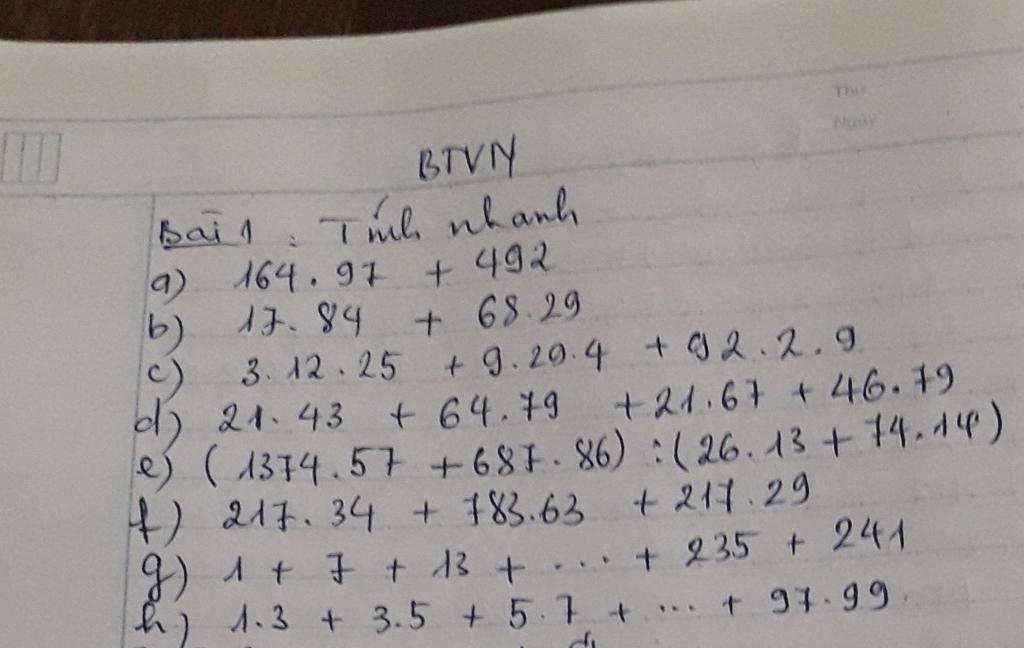 Thứ
Ngày
BTVN
Bài 1 : Tính nhanh
a) 164.97 + 492
b) 17.84 + 68.29
c) 3.12.25 + 9.20.4 + 92.2.9
d) 21.43 + 64.79 + 21.67 + 46.79
e) (1374.57 + 687.86) : (26.13 + 74.14)
f) 217.34 + 783.63 + 217.29
g) 1 + 7 + 13 + ... + 235 + 241
h) 1.3 + 3.5 + 5.7 + ... + 97.99